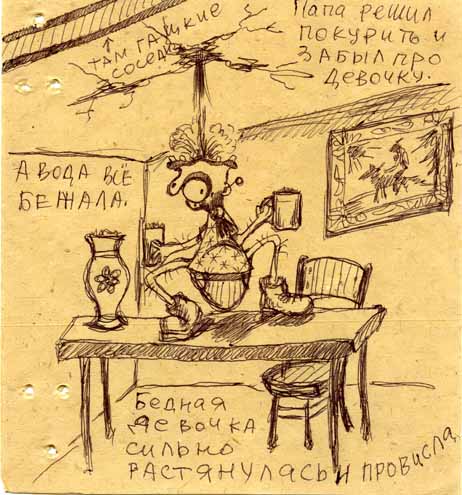 ТАМ ГАДКИЕ
СОСЕДИ
ПАПА РЕШИЛ
ПОКУРИТЬ И
ЗАБЫЛ ПРО
ДЕВОЧКУ.
А ВОДА ВСЁ
БЕЖАЛА.
БЕДНАЯ
ДЕВОЧКА
СИЛЬНО
РАСТЯНУЛАСЬ И ПРОВИСЛА.